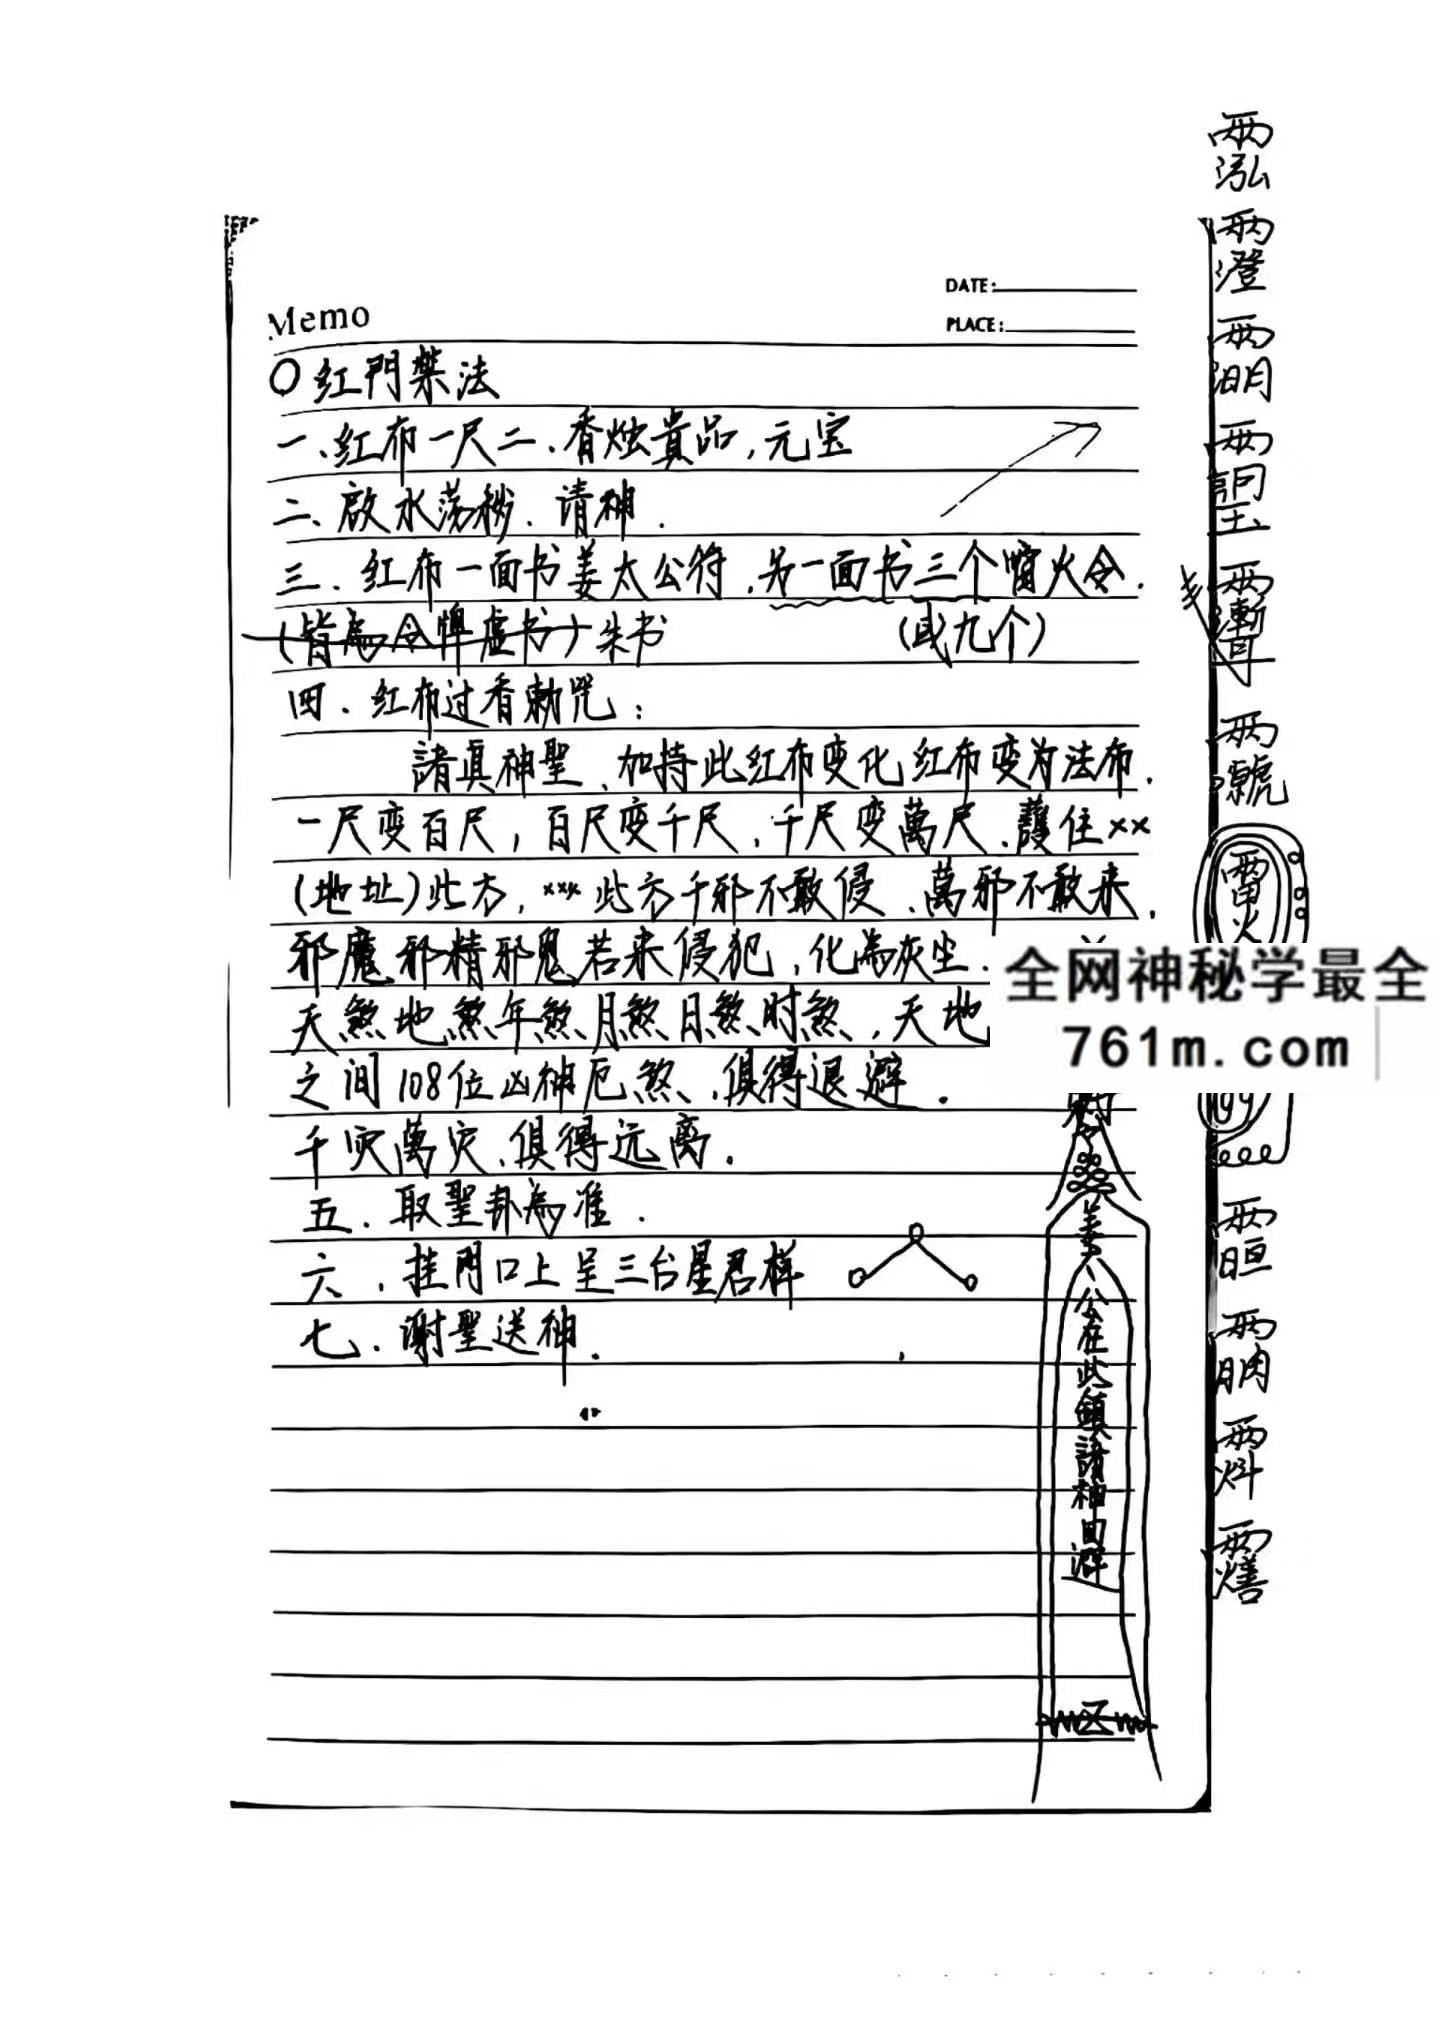 DATE:
PLACE:
Memo
〇红門禁法
一、红布一尺二、香烛貢品,元宝
二、啟水荡秽、请神.
三、红布一面书姜太公符,另一面书三个雷火令.
(皆為令牌虚书)朱书 (或九个)
四、红布过香勅咒:
諸真神聖、加持此红布变化红布变为法布.
一尺变百尺,百尺变千尺,千尺变萬尺、護住××
(地址)此方,×××此方千邪不敢侵、萬邪不敢来,
邪魔邪精邪鬼若来侵犯,化為灰尘.
天煞地煞年煞月煞日煞时煞,天地
之间108位凶神厄煞、俱得退避.
千灾萬灾、俱得远离.
五、取聖卦為准.
六、挂門口上呈三台星君样
七、谢聖送神.
姜公在此鎮諸神回避
雨泓
雨澄
雨明
雨號
雷火
雨晅
全网神秘学最全
761m.com